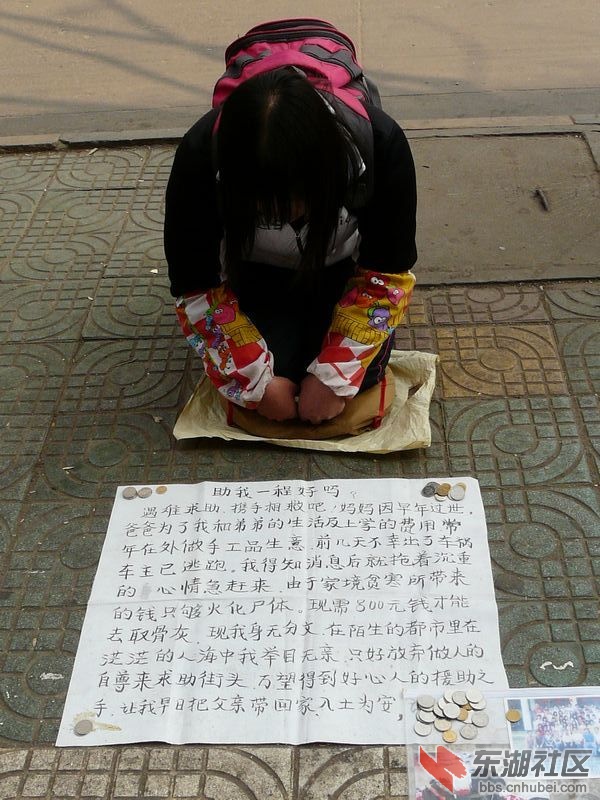 助我一程好吗?
遇难求助,携手相救吧!妈妈因早年过世,
爸爸为了我和弟弟的生活及上学的费用常
年在外做手工品生意,前几天不幸出了车祸
车主已逃跑。我得知消息后就抱着沉重
的心情急赶来,由于家境贫寒所带来
的钱只够火化尸体。现需800元钱才能
去取骨灰,现我身无分文,在陌生的都市里在
茫茫的人海中我举目无亲,只好放弃做人的
自尊来求助街头,万望得到好心人的援助之
手,让我早日把父亲带回家,入土为安,
东湖社区
bbs.cnhubei.com